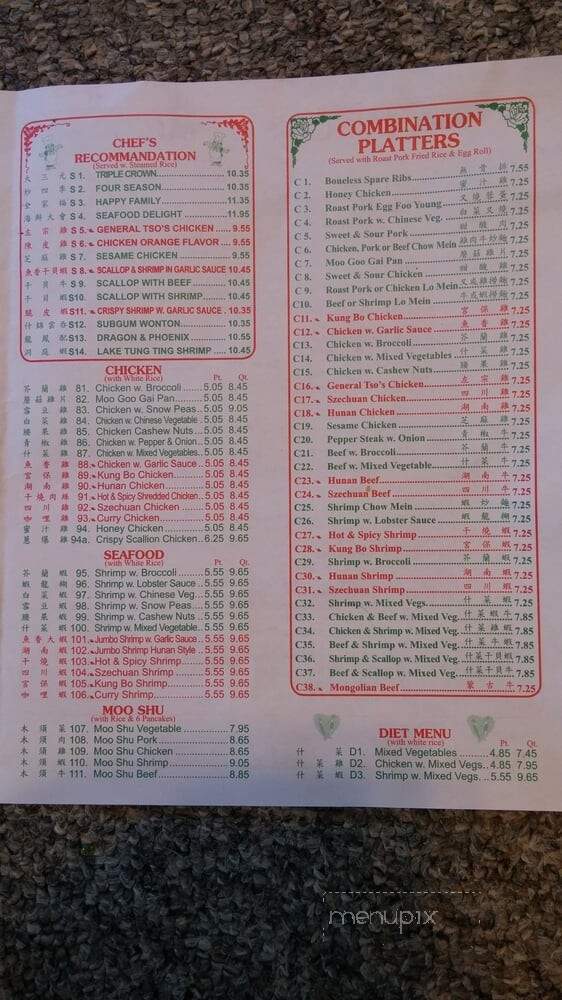 CHEF'S
RECOMMANDATION
(Served w. Steamed Rice)
大三元 S 1. TRIPLE CROWN 10.35
炒四季 S 2. FOUR SEASON 10.35
全家福 S 3. HAPPY FAMILY 11.35
海鮮大會 S 4. SEAFOOD DELIGHT 11.95
左宗雞 S 5. GENERAL TSO'S CHICKEN 9.55
陳皮雞 S 6. CHICKEN ORANGE FLAVOR 9.55
芝麻雞 S 7. SESAME CHICKEN 9.55
魚香干貝蝦 S 8. SCALLOP & SHRIMP IN GARLIC SAUCE 10.45
干貝牛 S 9. SCALLOP WITH BEEF 10.45
干貝蝦 S10. SCALLOP WITH SHRIMP 10.45
脆皮蝦 S11. CRISPY SHRIMP W. GARLIC SAUCE 10.35
什錦雲吞 S12. SUBGUM WONTON 10.35
龍鳳配 S13. DRAGON & PHOENIX 10.55
洞庭蝦 S14. LAKE TUNG TING SHRIMP 10.45
CHICKEN
(with White Rice) Pt. Qt.
芥蘭雞 81. Chicken w. Broccoli 5.05 8.45
蘑菇雞片 82. Moo Goo Gai Pan 5.05 8.45
雪豆雞 83. Chicken w. Snow Peas 5.05 9.05
白菜雞 84. Chicken w. Chinese Vegetable 5.05 8.45
腰果雞 85. Chicken Cashew Nuts 5.05 8.45
青椒雞 86. Chicken w. Pepper & Onion 5.05 8.45
什菜雞 87. Chicken w. Mixed Vegetables 5.05 8.45
魚香雞 88. Chicken w. Garlic Sauce 5.05 8.45
宮保雞 89. Kung Bo Chicken 5.05 8.45
湖南雞 90. Hunan Chicken 5.05 8.45
干燒肉絲 91. Hot & Spicy Shredded Chicken 5.05 8.45
四川雞 92. Szechuan Chicken 5.05 8.45
咖哩雞 93. Curry Chicken 5.05 8.45
蜜汁雞 94. Honey Chicken 5.05 8.45
蔥爆雞 94a. Crispy Scallion Chicken 6.25 9.65
SEAFOOD
(with White Rice) Pt. Qt.
芥蘭蝦 95. Shrimp w. Broccoli 5.55 9.65
蝦龍糊 96. Shrimp w. Lobster Sauce 5.55 9.65
白菜蝦 97. Shrimp w. Chinese Veg. 5.55 9.65
雪豆蝦 98. Shrimp w. Snow Peas 5.55 9.65
腰果蝦 99. Shrimp w. Cashew Nuts 5.55 9.65
什菜蝦 100. Shrimp w. Mixed Vegetable 5.55 9.65
魚香大蝦 101. Jumbo Shrimp w. Garlic Sauce 5.55 9.65
湖南蝦 102. Jumbo Shrimp Hunan Style 5.55 9.65
干燒蝦 103. Hot & Spicy Shrimp 5.55 9.65
四川蝦 104. Szechuan Shrimp 5.55 9.65
宮保蝦 105. Kung Bo Shrimp 5.55 9.65
咖哩蝦 106. Curry Shrimp 5.55 9.65
MOO SHU
(with Rice & 6 Pancakes)
木須菜 107. Moo Shu Vegetable 7.95
木須肉 108. Moo Shu Pork 8.65
木須雞 109. Moo Shu Chicken 8.65
木須蝦 110. Moo Shu Shrimp 9.05
木須牛 111. Moo Shu Beef 8.85
COMBINATION
PLATTERS
(Served with Roast Pork Fried Rice & Egg Roll)
C 1. Boneless Spare Ribs 無骨排 7.55
C 2. Honey Chicken 蜜汁雞 7.25
C 3. Roast Pork Egg Foo Young 叉燒蓉蛋 7.25
C 4. Roast Pork w. Chinese Veg. 白菜叉燒 7.25
C 5. Sweet & Sour Pork 甜酸肉 7.25
C 6. Chicken, Pork or Beef Chow Mein 雞肉牛炒麵 7.25
C 7. Moo Goo Gai Pan 蘑菇雞片 7.25
C 8. Sweet & Sour Chicken 甜酸雞 7.25
C 9. Roast Pork or Chicken Lo Mein 叉或雞撈麵 7.25
C10. Beef or Shrimp Lo Mein 牛或蝦撈麵 7.25
C11. Kung Bo Chicken 宮保雞 7.25
C12. Chicken w. Garlic Sauce 魚香雞 7.25
C13. Chicken w. Broccoli 芥蘭雞 7.25
C14. Chicken w. Mixed Vegetables 什菜雞 7.25
C15. Chicken w. Cashew Nuts 腰果雞 7.25
C16. General Tso's Chicken 左宗雞 7.25
C17. Szechuan Chicken 四川雞 7.25
C18. Hunan Chicken 湖南雞 7.25
C19. Sesame Chicken 芝麻雞 7.25
C20. Pepper Steak w. Onion 青椒牛 7.25
C21. Beef w. Broccoli 芥蘭牛 7.25
C22. Beef w. Mixed Vegetable 什菜牛 7.25
C23. Hunan Beef 湖南牛 7.25
C24. Szechuan Beef 四川牛 7.25
C25. Shrimp Chow Mein 蝦炒麵 7.25
C26. Shrimp w. Lobster Sauce 蝦龍糊 7.25
C27. Hot & Spicy Shrimp 干燒蝦 7.25
C28. Kung Bo Shrimp 宮保蝦 7.25
C29. Shrimp w. Broccoli 芥蘭蝦 7.25
C30. Hunan Shrimp 湖南蝦 7.25
C31. Szechuan Shrimp 四川蝦 7.25
C32. Shrimp w. Mixed Vegs. 什菜蝦 7.25
C33. Chicken & Beef w. Mixed Veg. 什菜蝦牛 7.85
C34. Chicken & Shrimp w. Mixed Veg. 什菜雞蝦 7.85
C35. Beef & Shrimp w. Mixed Veg. 什菜牛蝦 7.85
C36. Shrimp & Scallop w. Mixed Veg. 什菜干貝蝦 7.85
C37. Beef & Scallop w. Mixed Veg. 什菜干貝牛 7.85
C38. Mongolian Beef 蒙古牛 7.25
DIET MENU
(with white rice) Pt. Qt.
什菜 D1. Mixed Vegetables 4.85 7.45
什菜雞 D2. Chicken w. Mixed Vegs. 4.85 7.95
什菜蝦 D3. Shrimp w. Mixed Vegs. 5.55 9.65
menupix